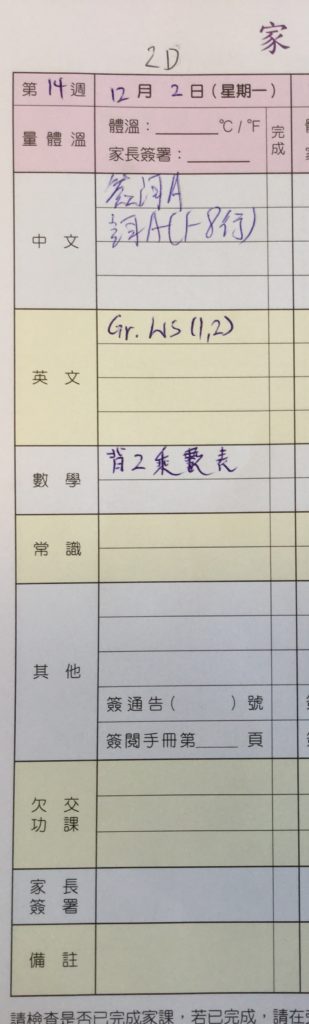 家
2D
第14週 12月2日(星期一)
量體溫 體溫：______℃/℉ 完成
家長簽署：______
中文 簽詞A
詞A(1-8行)
英文 Gr. WS (1,2)
數學 背2乘數表
常識
其他
簽通告( )號
簽閱手冊第____頁
欠交功課
家長簽署
備註
請檢查是否已完成家課，若已完成，請在